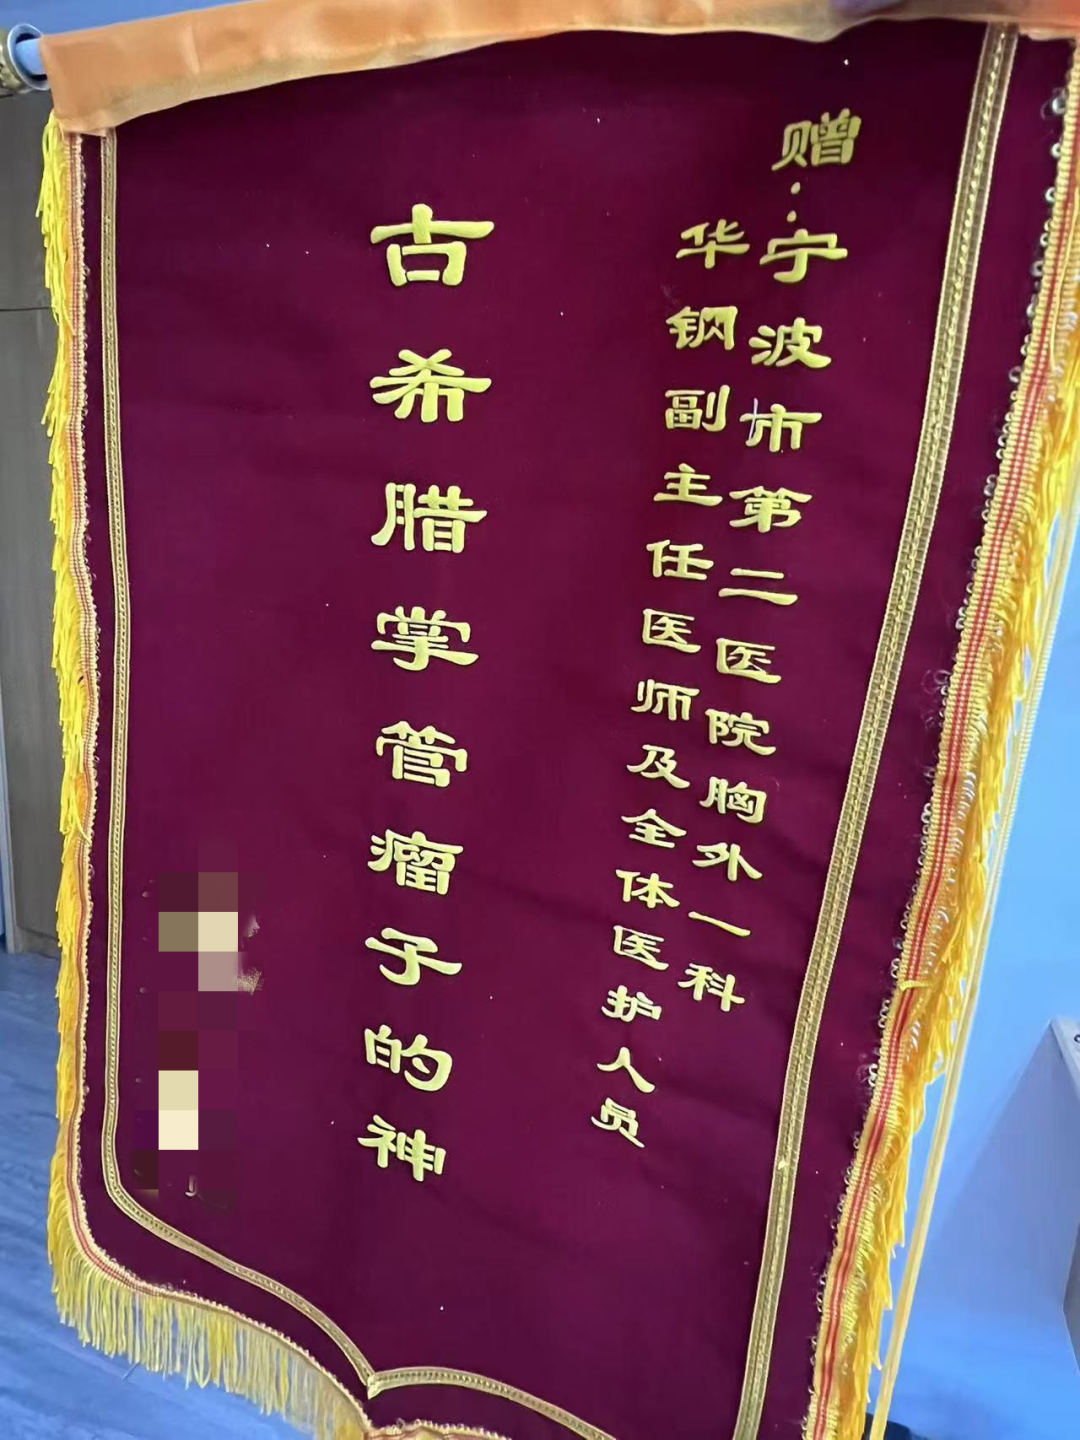 赠:宁波市第二医院胸外一科
华钢副主任医师及全体医护人员
古希腊掌管瘤子的神